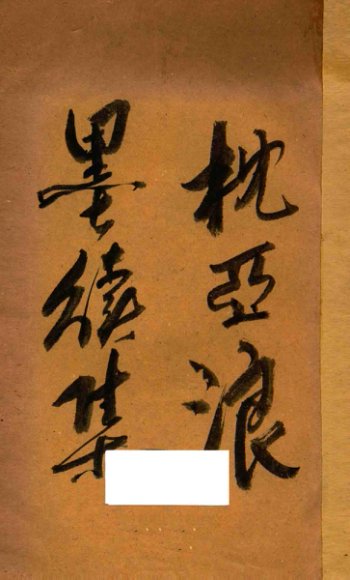 枕亞浪
墨續集